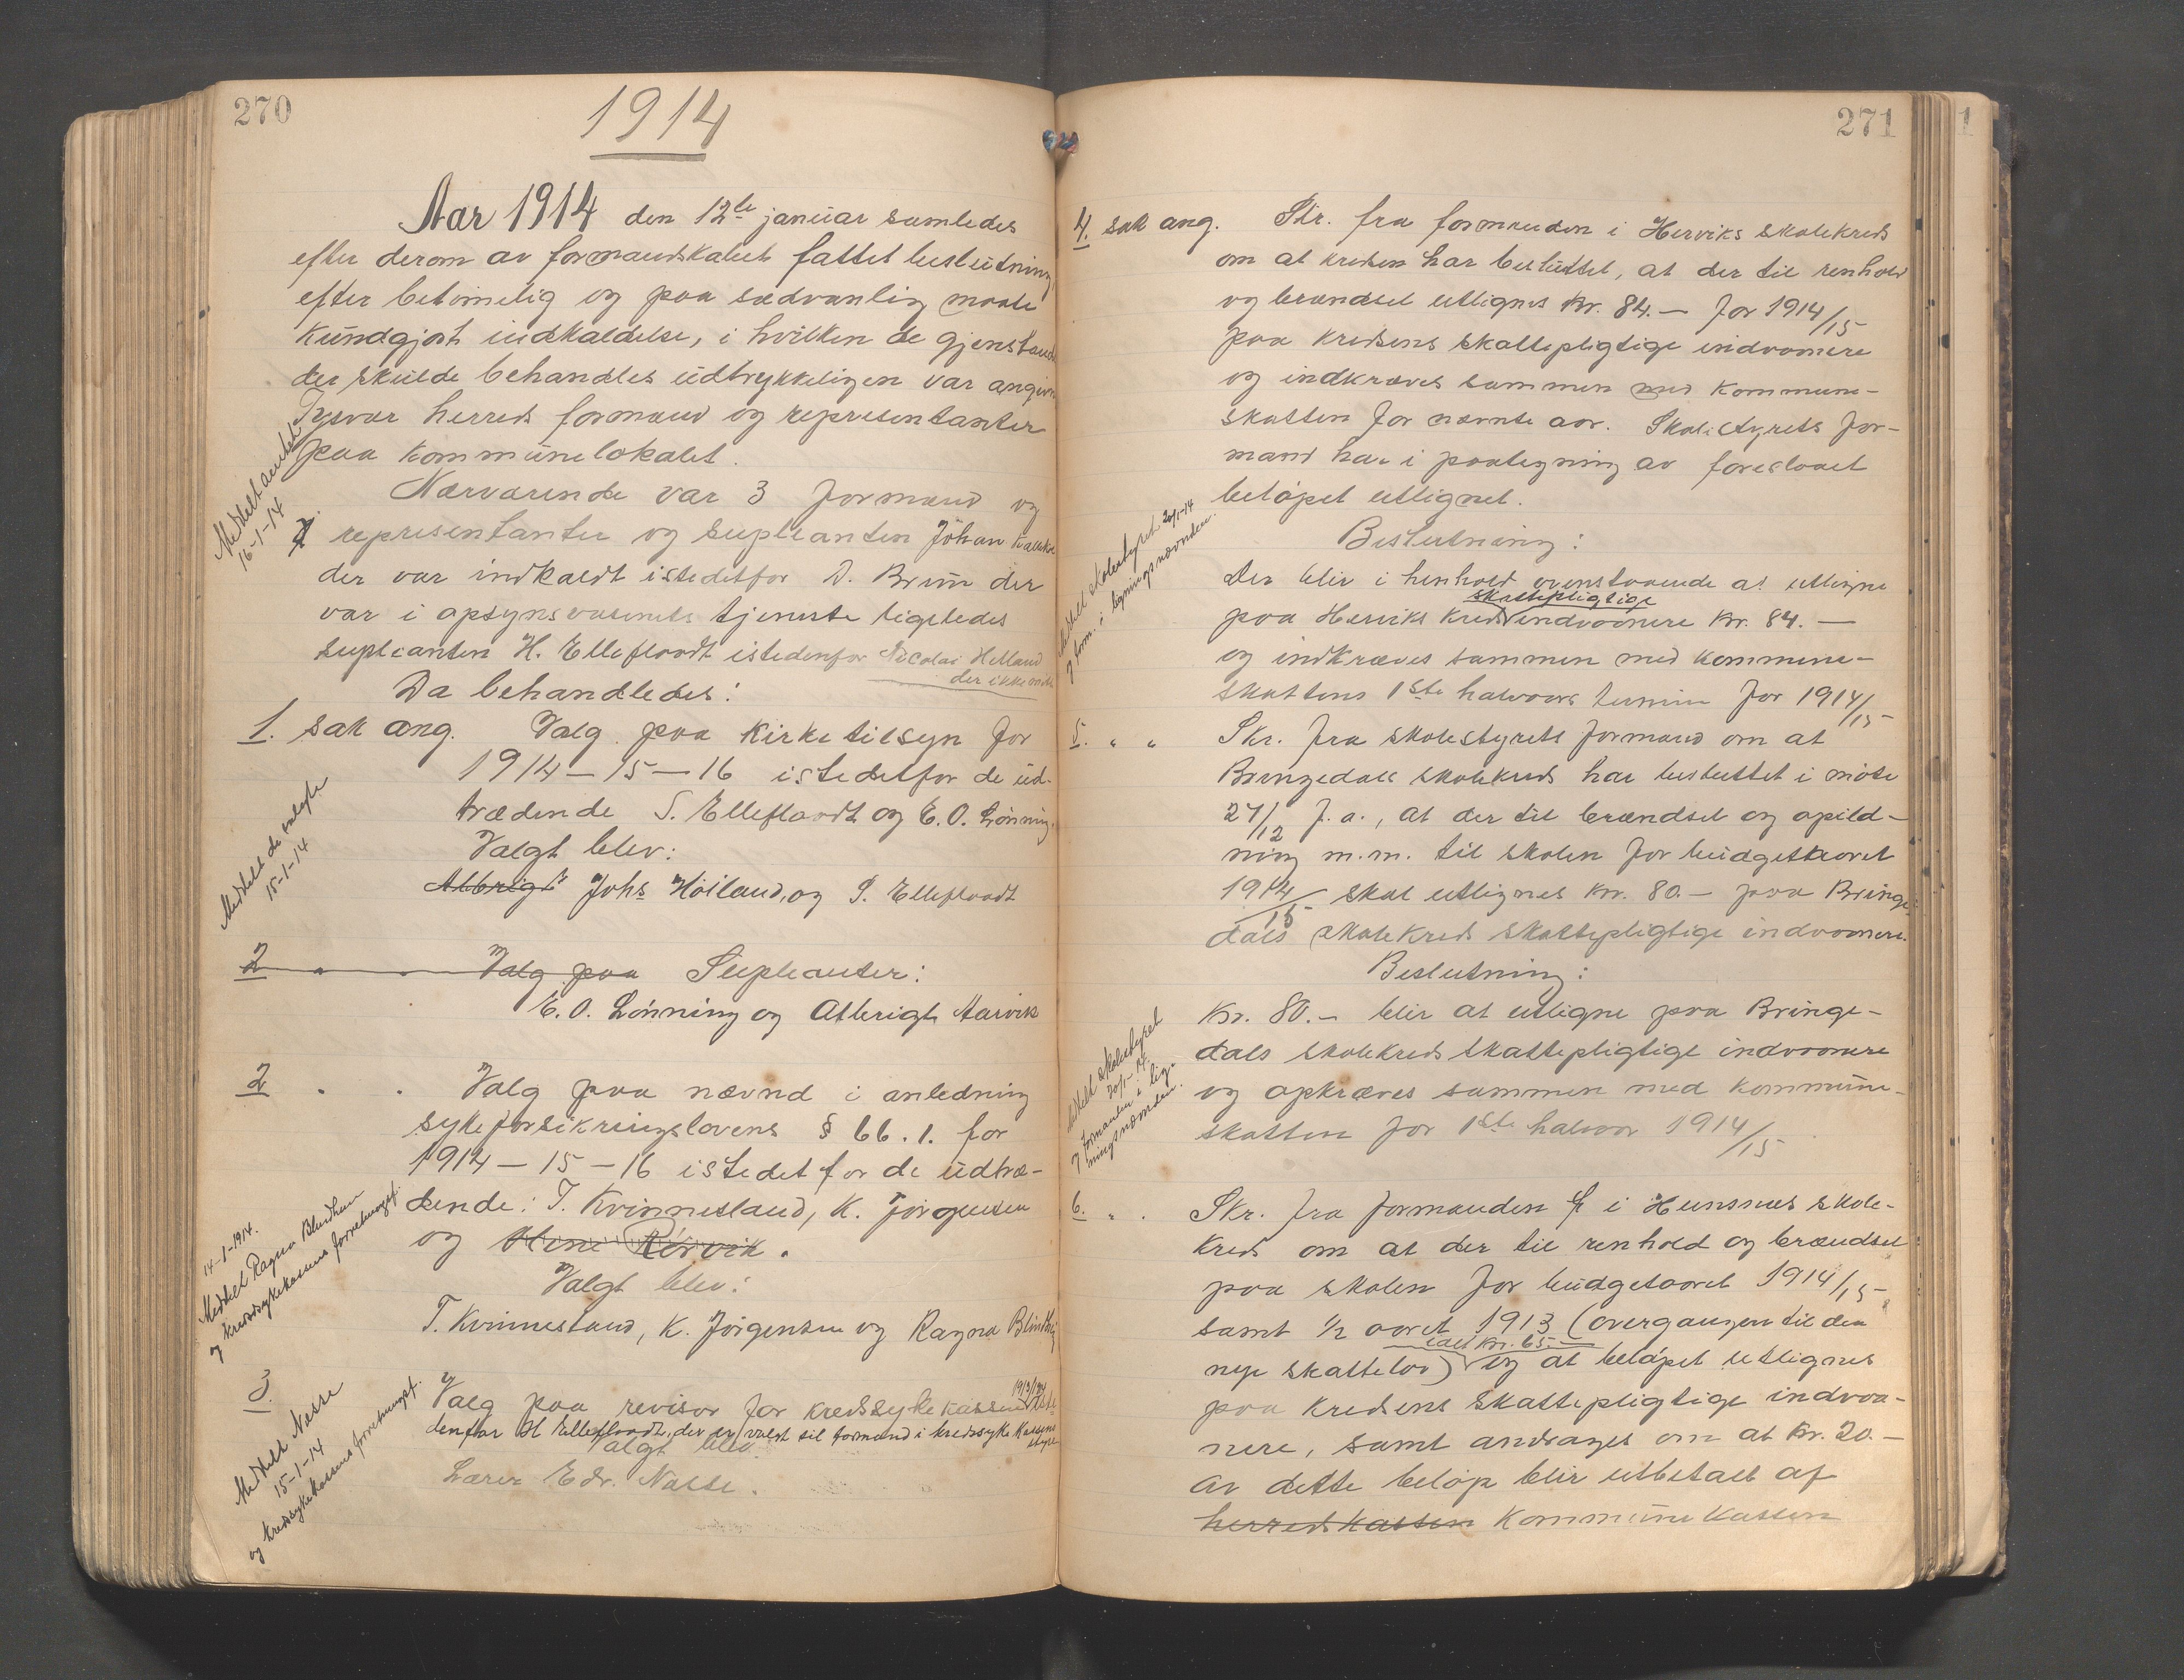 270
1914
Aar 1914 den 12te januar samledes
efter derom av formandskabet fattet beslutning,
efter betimelig og paa sædvanlig maate
kundgjort indkaldelse, i hvilken de gjenstande
der skulde behandles udtrykkeligen var angivn
Tysvær herreds formænd og representanter
paa Kommunelokalet.
Meddelt amtet
16-1-14
Nærværende var 3 formænd og
7 representanter og supleanten Johan
der var indkaldt istedetfor D. Brun der
var i opsynsvæsenets tjeneste ligeledes
supleanten H. Ellefloodt istedenfor Nicolai Helland
der ikke møtte
Da behandledes:
1. sak ang. Valg paa Kirketilsyn for
1914-15-16 istedetfor de ud-
trædende S. Ellefloodt og E. O. Lönning.
Valgt blev:
Meddelt de valgte
15-1-14
Albrigt Johs Höiland, og S. Ellefloodt
2 " " Valg paa Supleanter:
E. O. Lönning og Albrigt Aarvik
2 " " Valg paa nævnd i anledning
sykeforsikringslovens § 66.1. for
1914-15-16 istedet for de udtræ-
dende: T. Kvinnesland, K. Jörgensen
og Rörvik.
Valgt blev:
T. Kvinnesland, K. Jörgensen og Ragna
14-1-1914.
Meddelt Ragna
og Kredssykekassens forretningsf.
3. Valg paa revisor for kredssykekassen 1913/14 iste-
denfor H Ellefloodt, der er valgt til formand i kredssyke Kassens
styre
Valgt blev
Lærer Edv. Nasse.
Meddelt Nasse
15-1-14
og Kredssykekassens forretningsf.
271
4. sak ang. Skr. fra formanden i Herviks skolekreds
om at kredsen har besluttet, at der til renhold
og brændsel utlignes Kr. 84.- for 1914/15
paa kredsens skattepligtige indvaanere
og indkræves sammen med Kommune-
skatten for nævnte aar. Skolestyrets for-
mand har i paategning av foreslaaet
beløpet utlignet.
Beslutning:
Meddelt skolestyret 20/1-14
og form. i ligningsnævnden.
Der blir i henhold ovenstaaende at utligne
skattepligtige
paa Herviks Kreds indvaanere Kr. 84.-
og indkræves sammen med Kommune-
skattens 1ste halvaars termin for 1914/15
5. " " Skr. fra skolestyrets formand om at
Bringedals skolekreds har besluttet i møte
27/12 f.a., at der til brændsel og opild-
ning m.m. til skolen for budgetaaret
1914/15 skal utlignes Kr. 80.- paa Bringe-
dals skolekreds skattepligtige indvaanere.
Beslutning:
Kr. 80.- blir at utligne paa Bringe-
dals skolekreds skattepligtige indvaanere
og opkræves sammen med Kommune-
skatten for 1ste halvaar 1914/15
Meddelt skolestyret
20/1-14.
og formanden i lig-
ningsnævnden.
6. " " Skr. fra formanden i Hunsnes skole-
kreds om at der til renhold og brændsel
paa skolen for budgetaaret 1914/15
samt 1/2 aaret 1913 (overgangen til den
ialt Kr. 65.-
nye skattelov) og at beløpet utlignes
paa kredsens skattepligtige indvaa-
nere, samt andrages om at Kr. 20.-
av dette beløp blir utbetalt af
herredskassen Kommunekassen